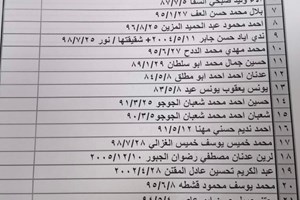 ٨٧/٧/٥
بلال محمد حسن العف ٩٥/١/٢٧ ٧
احمد محمود عبد الحميد المزين ٩٦/٨/٢٥ ٨
ندي اياد حسن جابر ٢٠٠٤/٥/١١ + شقيقتها / نور ٩٨/٧/٢٥ ٩
محمد مهدي محمد الددح ٩٥/٦/٢٧ ١٠
حسين جمال محمد ابو سلطان ٨٩/١/٢٩ ١١
عدنان احمد احمد ابو مطلق ٨٤/٥/٨ ١٢
يونس يعقوب يونس عيد ٨٣/٥/٨ ١٣
حسين احمد محمد شعبان الجوجو ٩١/٣/٢٥ ١٤
شعبان احمد محمد شعبان الجوجو ٩٠/٣/٥ ١٥
احمد نديم حسني مهنا ٩١/٥/١٢ ١٦
محمد خميس يوسف خميس الغزالي ٩٨/٧/٢٨ ١٧
لرين عدنان مصطفي رضوان الجبور ٢٠٠٥/١٢/١٠ ١٨
عبد الكريم تحسين عادل المقتن ٢٠٠٢/٤/٢٨ ١٩
محمد يوسف محمود قشطه ٩٥/٦/٨ ٢٠